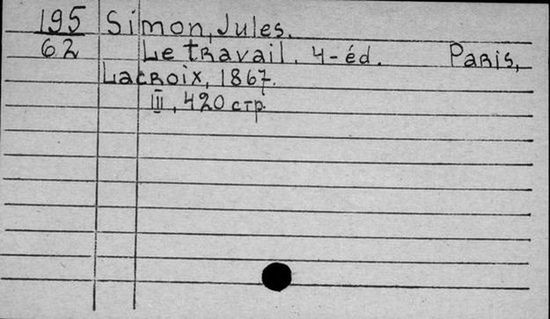 195 Simon, Jules.
62 Le travail. 4-éd. Paris,
Lacroix, 1867.
III, 420 стр.